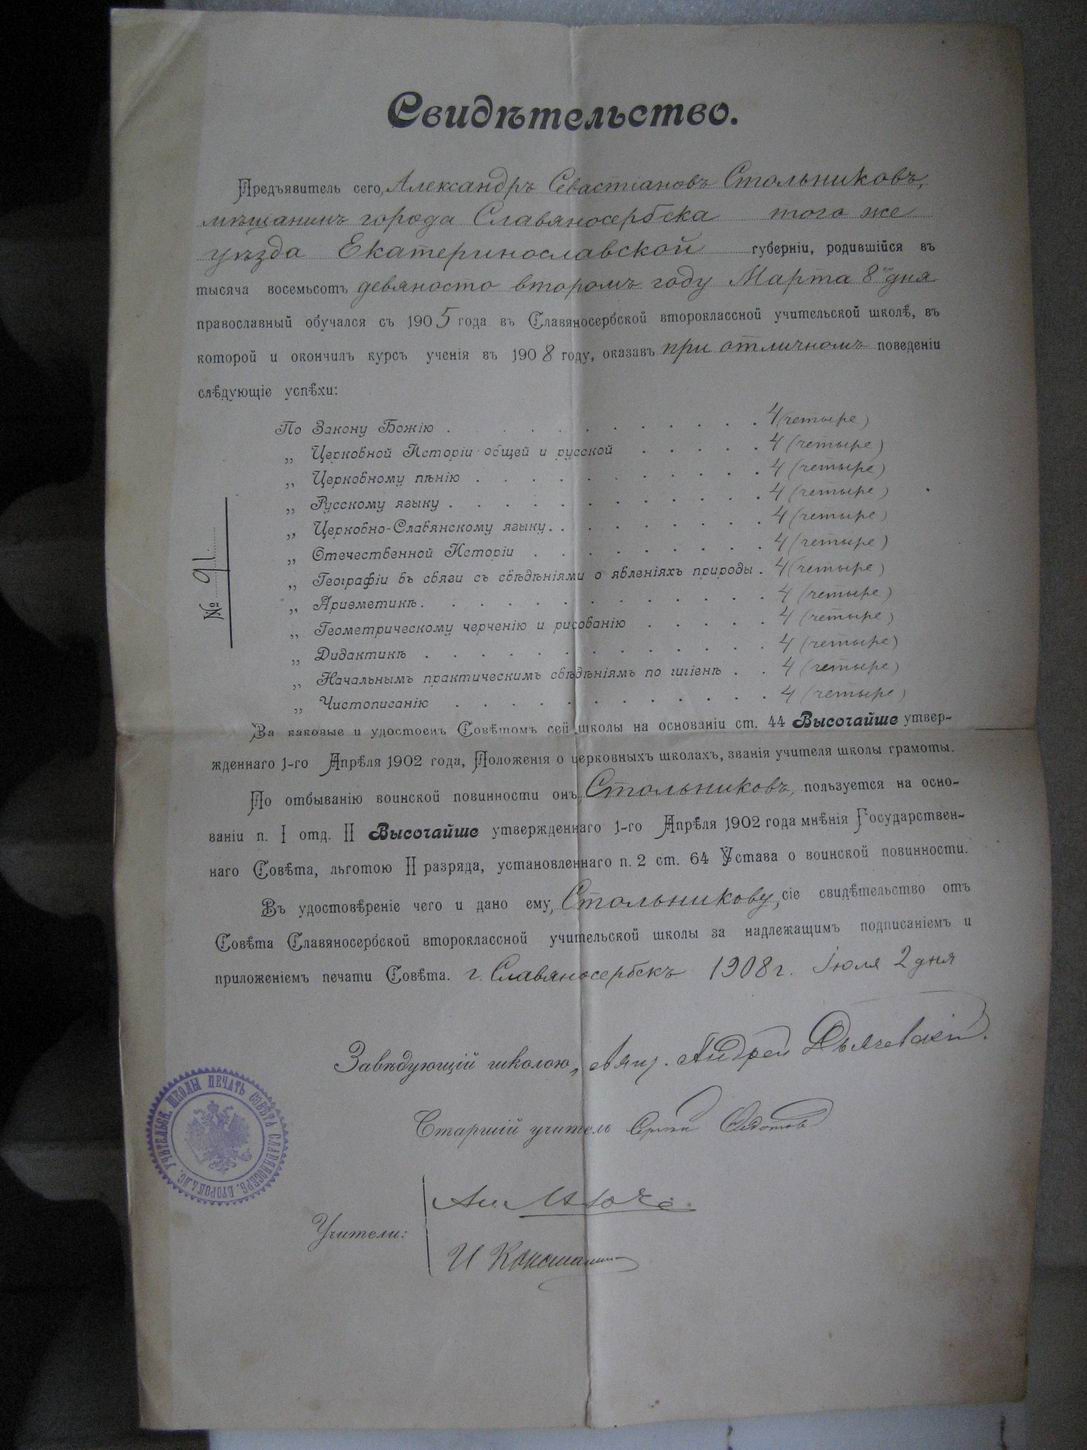 Свидѣтельство.
Предъявитель сего, Александръ Севастіановъ Стольниковъ,
мѣщанинъ города Славяносербска того же
уѣзда Екатеринославской губерніи, родившійся въ
тысяча восемьсотъ девяносто второмъ году Марта 8го дня
православный обучался съ 1905 года въ Славяносербской второклассной учительской школѣ, въ
которой и окончилъ курсъ ученія въ 1908 году, оказавъ при отличномъ поведеніи
слѣдующіе успѣхи:
По Закону Божію . . . . . . . . . . . . 4 (четыре)
„ Церковной Исторіи общей и русской . . . . . 4 (четыре)
„ Церковному пѣнію . . . . . . . . . . . 4 (четыре)
„ Русскому языку . . . . . . . . . . . . 4 (четыре)
„ Церковно-Славянскому языку. . . . . . . . . 4 (четыре)
„ Отечественной Исторіи . . . . . . . . . 4 (четыре)
„ Географіи въ связи съ свѣдѣніями о явленіяхъ природы . 4 (четыре)
„ Ариѳметикѣ. . . . . . . . . . . . . 4 (четыре)
„ Геометрическому черченію и рисованію . . . . . 4 (четыре)
„ Дидактикѣ . . . . . . . . . . . . . 4 (четыре)
„ Начальнымъ практическимъ свѣдѣніямъ по гигіенѣ . . 4 (четыре)
„ Чистописанію . . . . . . . . . . . . 4 (четыре)
№ 91.
За каковые и удостоенъ Совѣтомъ сей школы на основаніи ст. 44 Высочайше утвер-
жденнаго 1-го Апрѣля 1902 года, Положенія о церковныхъ школахъ, званія учителя школы грамоты.
По отбыванію воинской повинности онъ, Стольниковъ, пользуется на осно-
ваніи п. I отд. II Высочайше утвержденнаго 1-го Апрѣля 1902 года мнѣнія Государствен-
наго Совѣта, льготою II разряда, установленнаго п. 2 ст. 64 Устава о воинской повинности.
Въ удостовѣреніе чего и дано ему, Стольникову, сіе свидѣтельство отъ
Совѣта Славяносербской второклассной учительской школы за надлежащимъ подписаніемъ и
приложеніемъ печати Совѣта. г. Славяносербскъ 1908 г. Іюля 2 дня
Завѣдующій школою, Андрей
Старшій учитель
Учители:
ПЕЧАТЬ СОВѢТА СЛАВЯНОСЕРБ. ВТОРОКЛАС. УЧИТЕЛЬСК. ШКОЛЫ